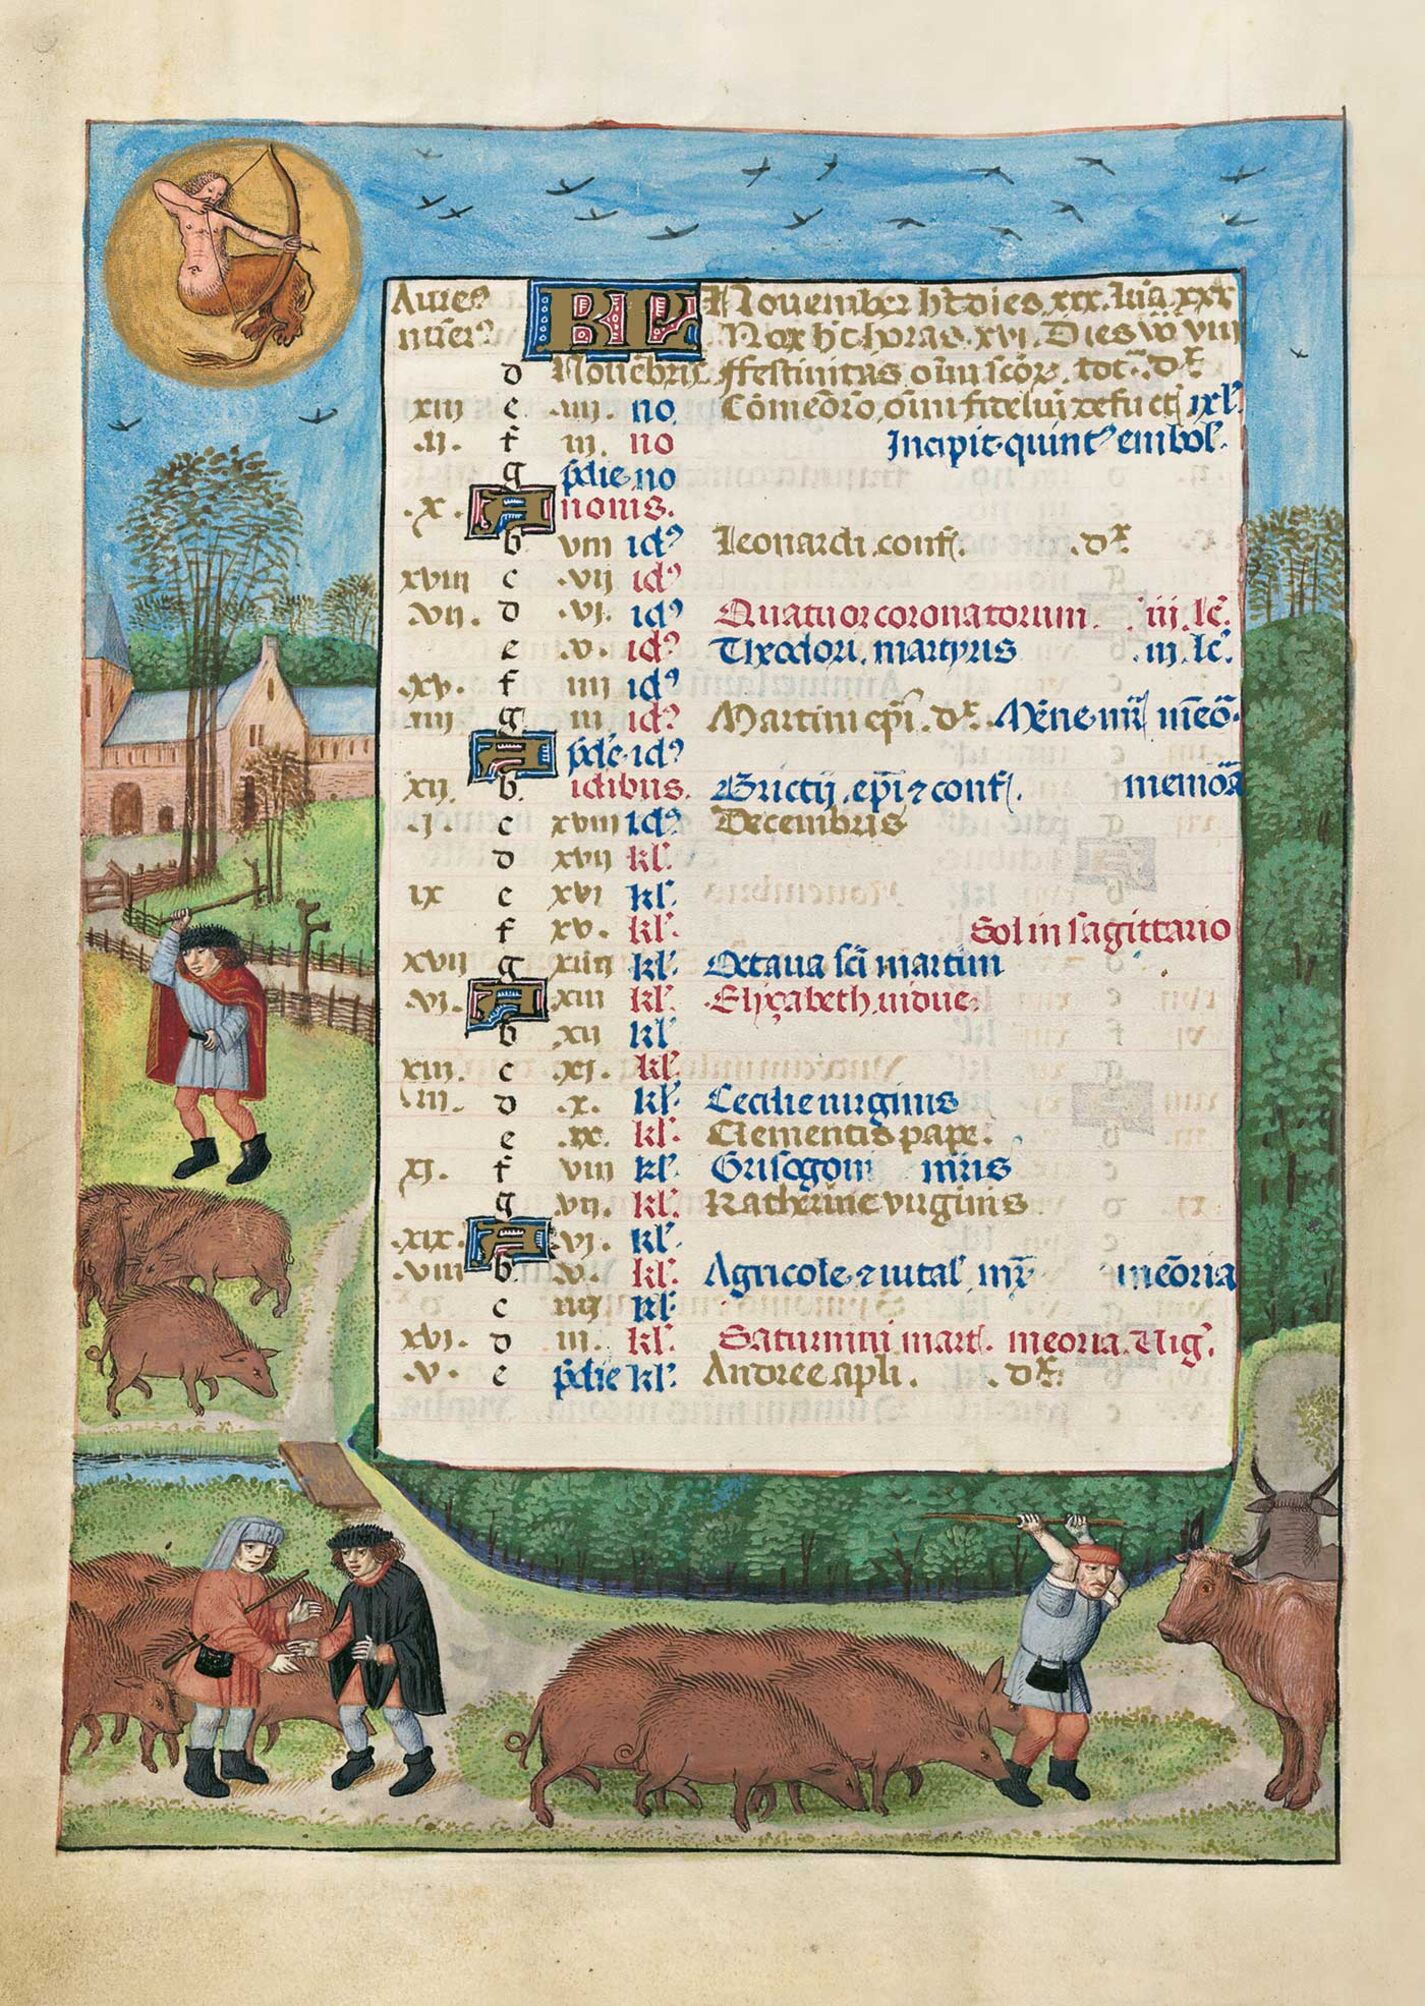 Aure⁹ KL November hꝫ dies .xxx. luā. xxx
nūer⁹ Nox hꝫ horas .xvi. Dies vō viii
d Novēbris ffestivitas oīm scōꝝ. tot. dx̄
xiii e .iiii. no Cōmeōro. oīm fideliū defūctꝝ ixl'.
.ii. f iii. no Incipit quint⁹ embol'.
g p̄die no
.x. A nonis.
b viii id⁹ Leonardi conf. .dx̄
xviii c .vii id⁹
.vii. d .vi. id⁹ Quatuor coronatorum. iii. lc̄.
e .v. id⁹ Theodori. martyris .iii. lc̄.
.xv. f iiii id⁹
.iiii g iii id⁹ Martini ep̄i. dx̄. Mēne mr̄ mēō.
A p̄die id⁹
xii. b. idibus. Brictii. ep̄i ⁊ conf. memōā
.i. c xviii id⁹ Decembris
d xvii kl'.
ix e xvi kl'.
f xv. kl'. Sol in sagittario
xvii g xiiii kl'. Octava sc̄i martini
.vi. A xiii kl'. Elizabeth vidue.
b xii kl'
xiii. c .xi. kl'.
.iii. d .x. kl'. Cecilie virginis
e .ix. kl'. Clementis pape.
xi. f viii kl'. Grisogoni mr̄is
g vii. kl'. Katherine virginis
.xix. A .vi. kl'.
.viii b. .v. kl'. Agricole ⁊ vital' mr̄ mēōria
c iiii kl'.
xvi. d iii. kl'. Saturnini mart. meoria. Vig'.
.v. e p̄die kl'. Andree apli. .dx̄.